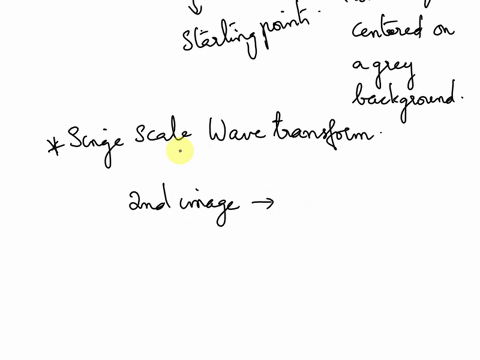 Starting point.
centered on
a grey
background.
* Singe Scale Wave transform.
2nd image →